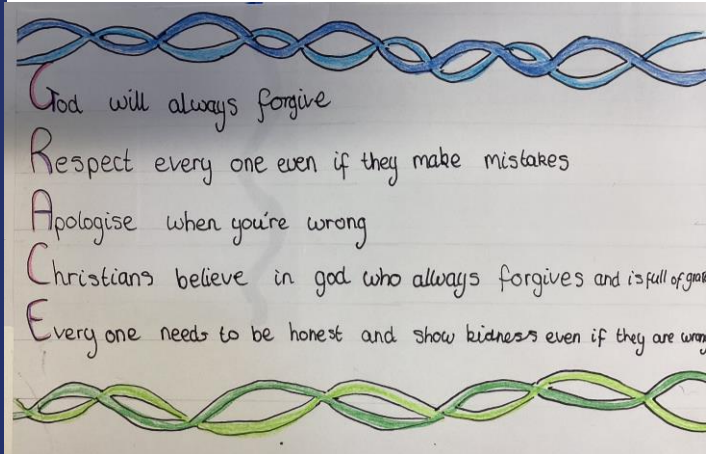 God will always forgive
Respect every one even if they make mistakes
Apologise when you're wrong
Christians believe in god who always forgives and is full of
Every one needs to be honest and show kidness even if they are